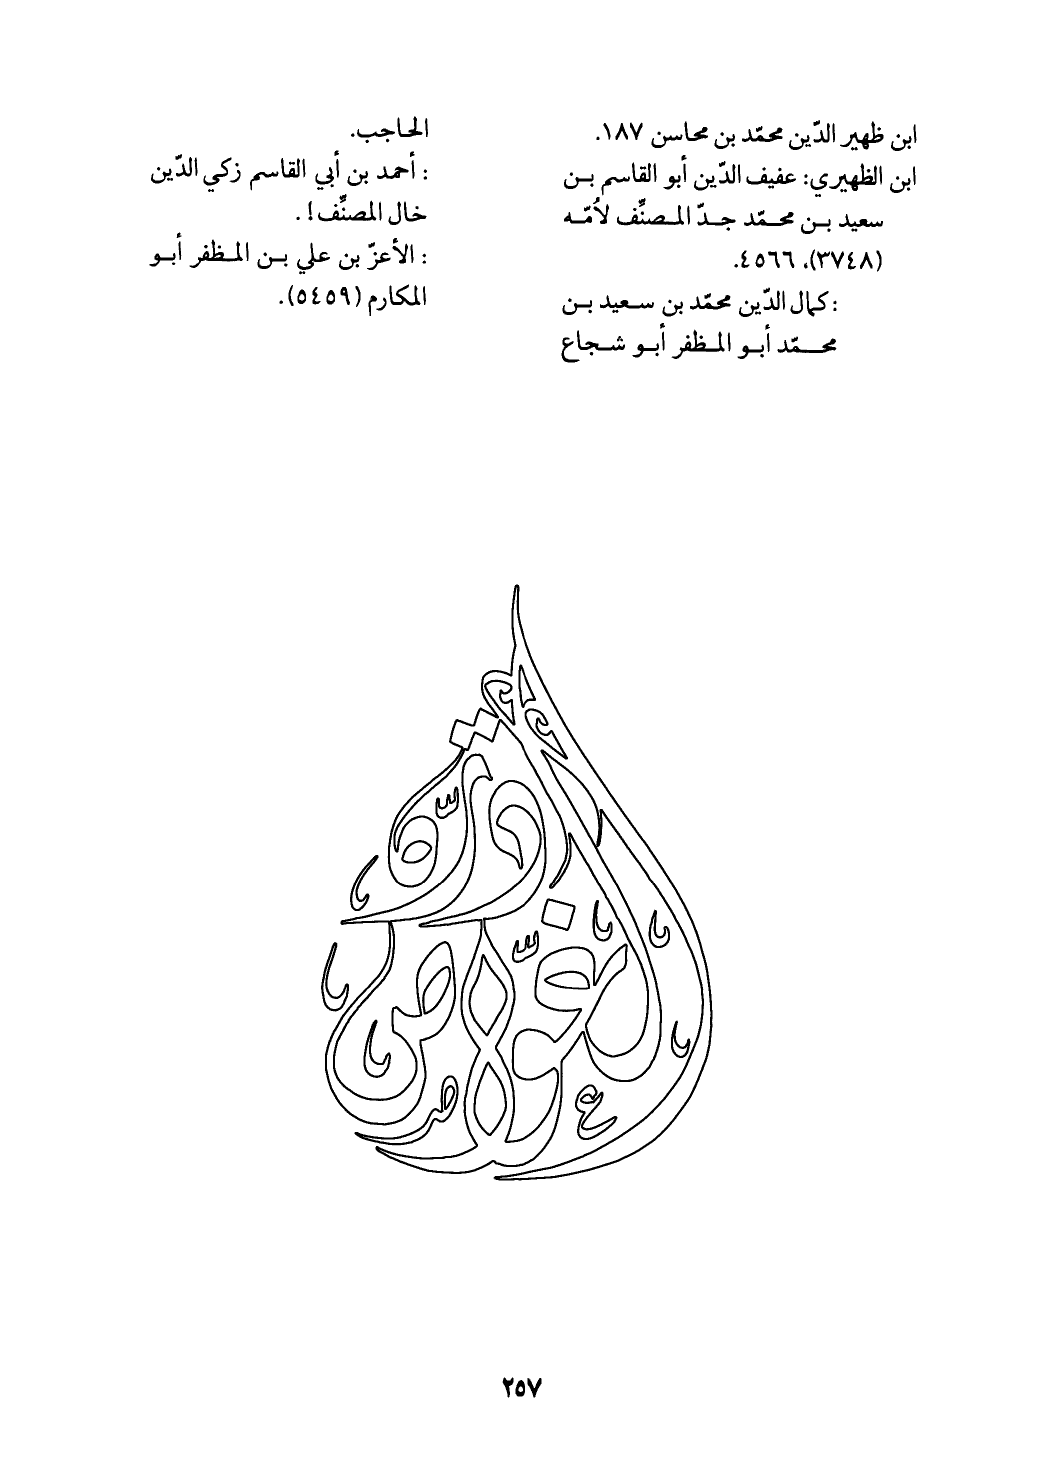 ابن ظهير الدّين محمّد بن محاسن ١٨٧.
ابن الظهيري: عفيف الدّين أبو القاسم بـن
سعيد بـن محـمّد جـدّ المـصنِّف لاُمّـه
(٣٧٤٨)، ٤٥٦٦.
: كمال الدّين محمّد بن سـعيد بـن
محـــمّد أبـو المـظفر أبـو شـجاع
الحاجب.
: أحمد بن أبي القاسم زكي الدّين
خال المصنِّف! .
: الأعزّ بن علي بـن المـظفر أبـو
المكارم (٥٤٥٩).
٢٥٧